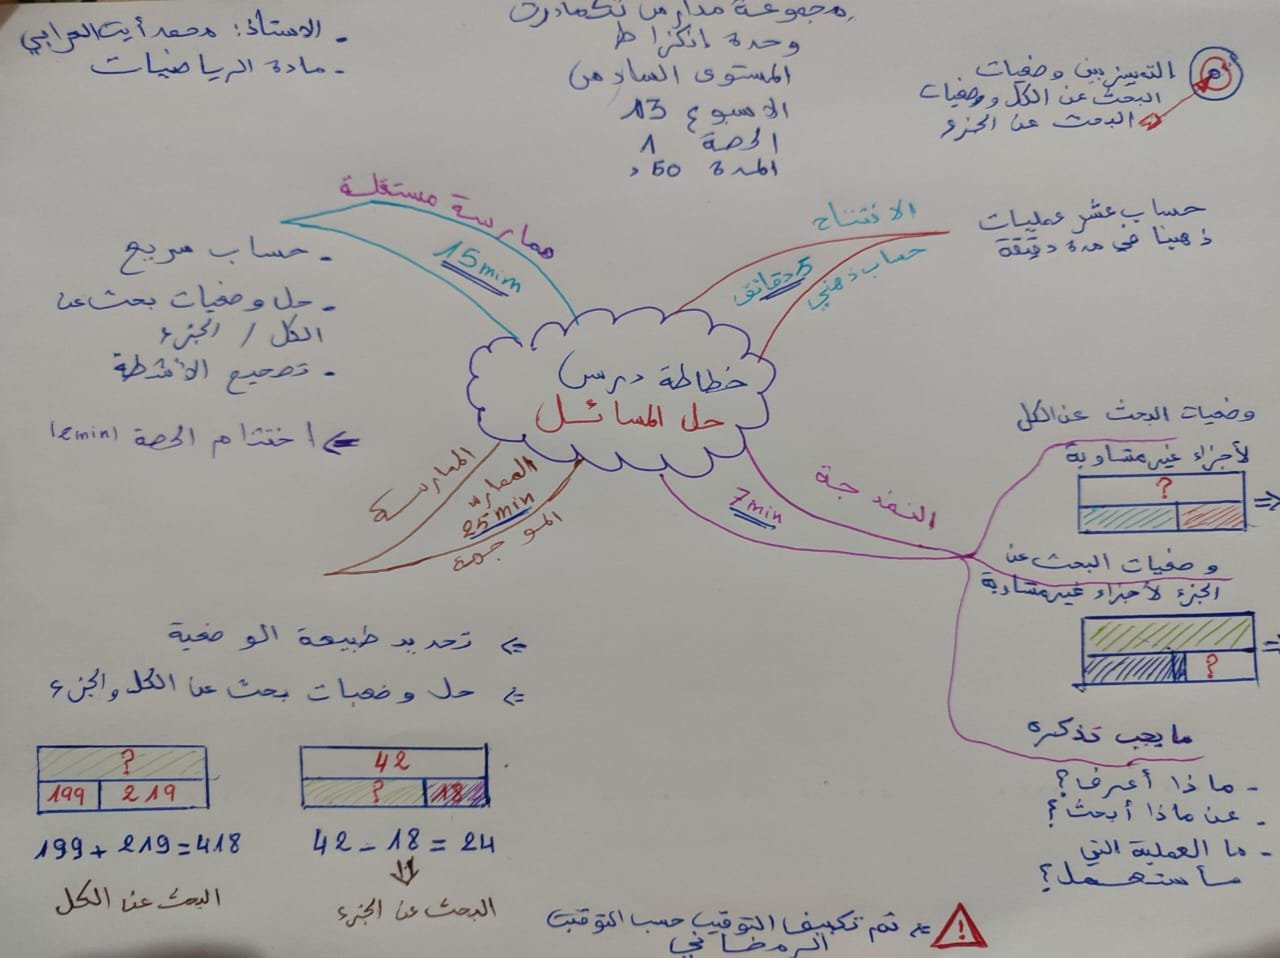 مجموعة مدارس تكمادرت
وحدة انكزاط
المستوى السادس
الاسبوع 13
الحصة 1
المدة 50 د
- الاستاذ: محمد أيت العرابي
- مادة الرياضيات
التمييز بين وضعيات
البحث عن الكل ووضعيات
البحث عن الجزء
خطاطة درس
حل المسائل
الافتتاح
5 دقائق
حساب ذهني
حساب عشر عمليات
ذهنيا في مدة دقيقة
النمذجة
7min
وضعيات البحث عن الكل
لأجزاء غير متساوية
?
وضعيات البحث عن
الجزء لأجزاء غير متساوية
?
ما يجب تذكره
- ماذا أعرف؟
- عن ماذا أبحث؟
- ما العملية التي
سأستعمل؟
الممارسة
الممارسة
25min
الموجهة
⇐ تحديد طبيعة الوضعية
⇐ حل وضعيات بحث عن الكل والجزء
42
? 18
42 - 18 = 24
البحث عن الجزء
?
199 219
199 + 219 = 418
البحث عن الكل
ممارسة مستقلة
15min
- حساب سريع
- حل وضعيات بحث عن
الكل / الجزء
- تصحيح الأنشطة
⇐ اختتام الحصة (2min)
! ⇐ تم تكييف التوقيت حسب التوقيت
الرمضاني